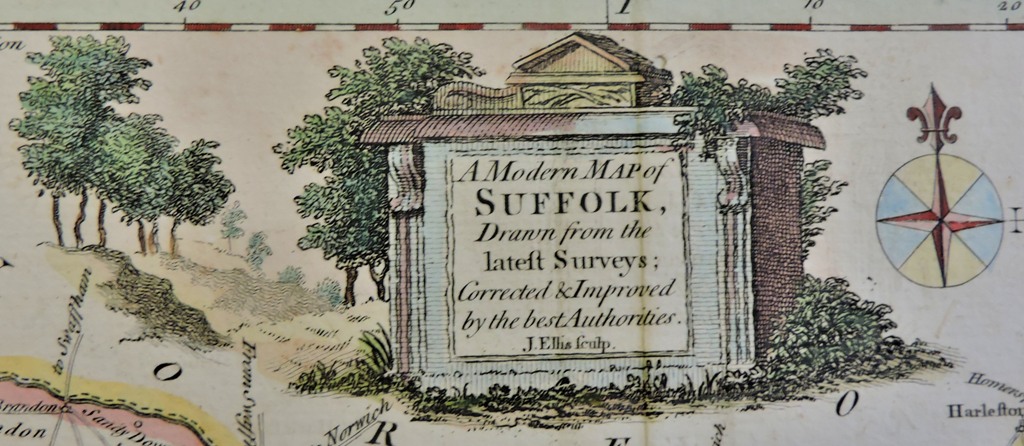 40 50 10 20
A Modern MAP of
SUFFOLK,
Drawn from the
lateſt Surveys;
Corrected & Improved
by the best Authorities.
J. Ellis ſculp.
to Swaffham
O
from
Brandon
Sandy Dow
Norwich
R
F
O
Harleſton